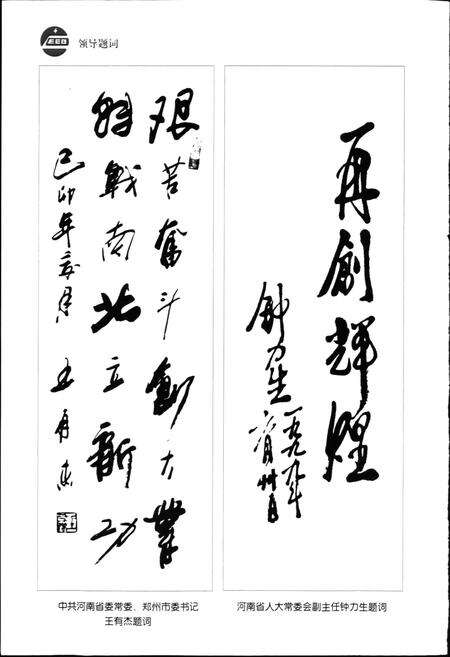 领导题词
艰苦奋斗创大业
转战南北立新功
己卯年六月
王有杰
再創輝煌
钟力生
一九九九年
六月卅日
中共河南省委常委、郑州市委书记
王有杰题词
河南省人大常委会副主任钟力生题词